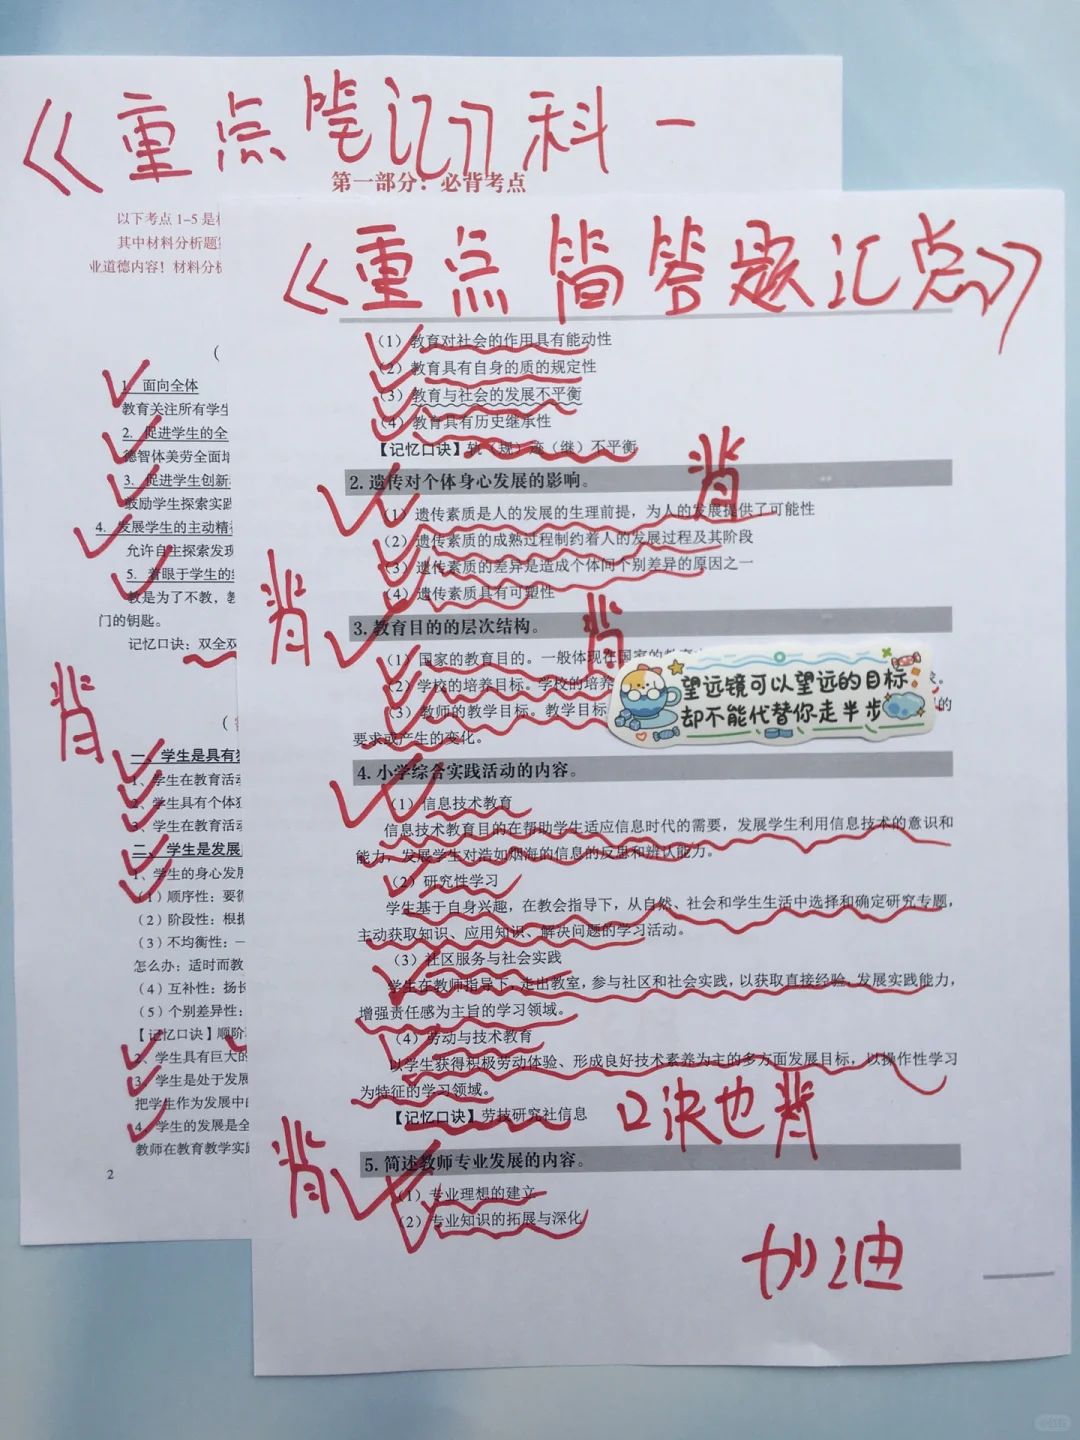 《重点笔记》科一
第一部分：必背考点
以下考点1-5是
其中材料分析题
业道德内容！材料分析
(
1. 面向全体
教育关注所有学生
2. 促进学生的全
德智体美劳全面
3. 促进学生创新
鼓励学生探索实践
4. 发展学生的主动精
允许自主探索发现
5. 着眼于学生的
教是为了不教，
门的钥匙。
记忆口诀：双全双
背
(
一、学生是具有
1、学生在教育活
2、学生具有个体
3、学生在教育活动
二、学生是发展
1、学生的身心发
（1）顺序性：要
（2）阶段性：根据
（3）不均衡性：一
怎么办：适时而教
（4）互补性：扬长
（5）个别差异性：
【记忆口诀】顺阶
2、学生具有巨大的
3、学生是处于发展
把学生作为发展中
4、学生的发展是全
教师在教育教学实践
2
《重点简答题汇总》
（1）教育对社会的作用具有能动性
（2）教育具有自身的质的规定性
（3）教育与社会的发展不平衡
（4）教育具有历史继承性
【记忆口诀】轨（规）迹（继）不平衡
背
2. 遗传对个体身心发展的影响。
（1）遗传素质是人的发展的生理前提，为人的发展提供了可能性
（2）遗传素质的成熟过程制约着人的发展过程及其阶段
（3）遗传素质的差异是造成个体间个别差异的原因之一
（4）遗传素质具有可塑性
背
背
3. 教育目的的层次结构。
（1）国家的教育目的。一般体现在国家的教育
（2）学校的培养目标。学校的培养
（3）教师的教学目标。教学目标
的
要求或产生的变化。
望远镜可以望远的目标
却不能代替你走半步
4. 小学综合实践活动的内容。
（1）信息技术教育
信息技术教育目的在帮助学生适应信息时代的需要，发展学生利用信息技术的意识和
能力，发展学生对浩如烟海的信息的反思和辨认能力。
（2）研究性学习
学生基于自身兴趣，在教会指导下，从自然、社会和学生生活中选择和确定研究专题，
主动获取知识、应用知识、解决问题的学习活动。
（3）社区服务与社会实践
学生在教师指导下，走出教室，参与社区和社会实践，以获取直接经验，发展实践能力，
增强责任感为主旨的学习领域。
（4）劳动与技术教育
以学生获得积极劳动体验、形成良好技术素养为主的多方面发展目标，以操作性学习
为特征的学习领域。
【记忆口诀】劳技研究社信息
口决也背
背
5. 简述教师专业发展的内容。
（1）专业理想的建立
（2）专业知识的拓展与深化
加油